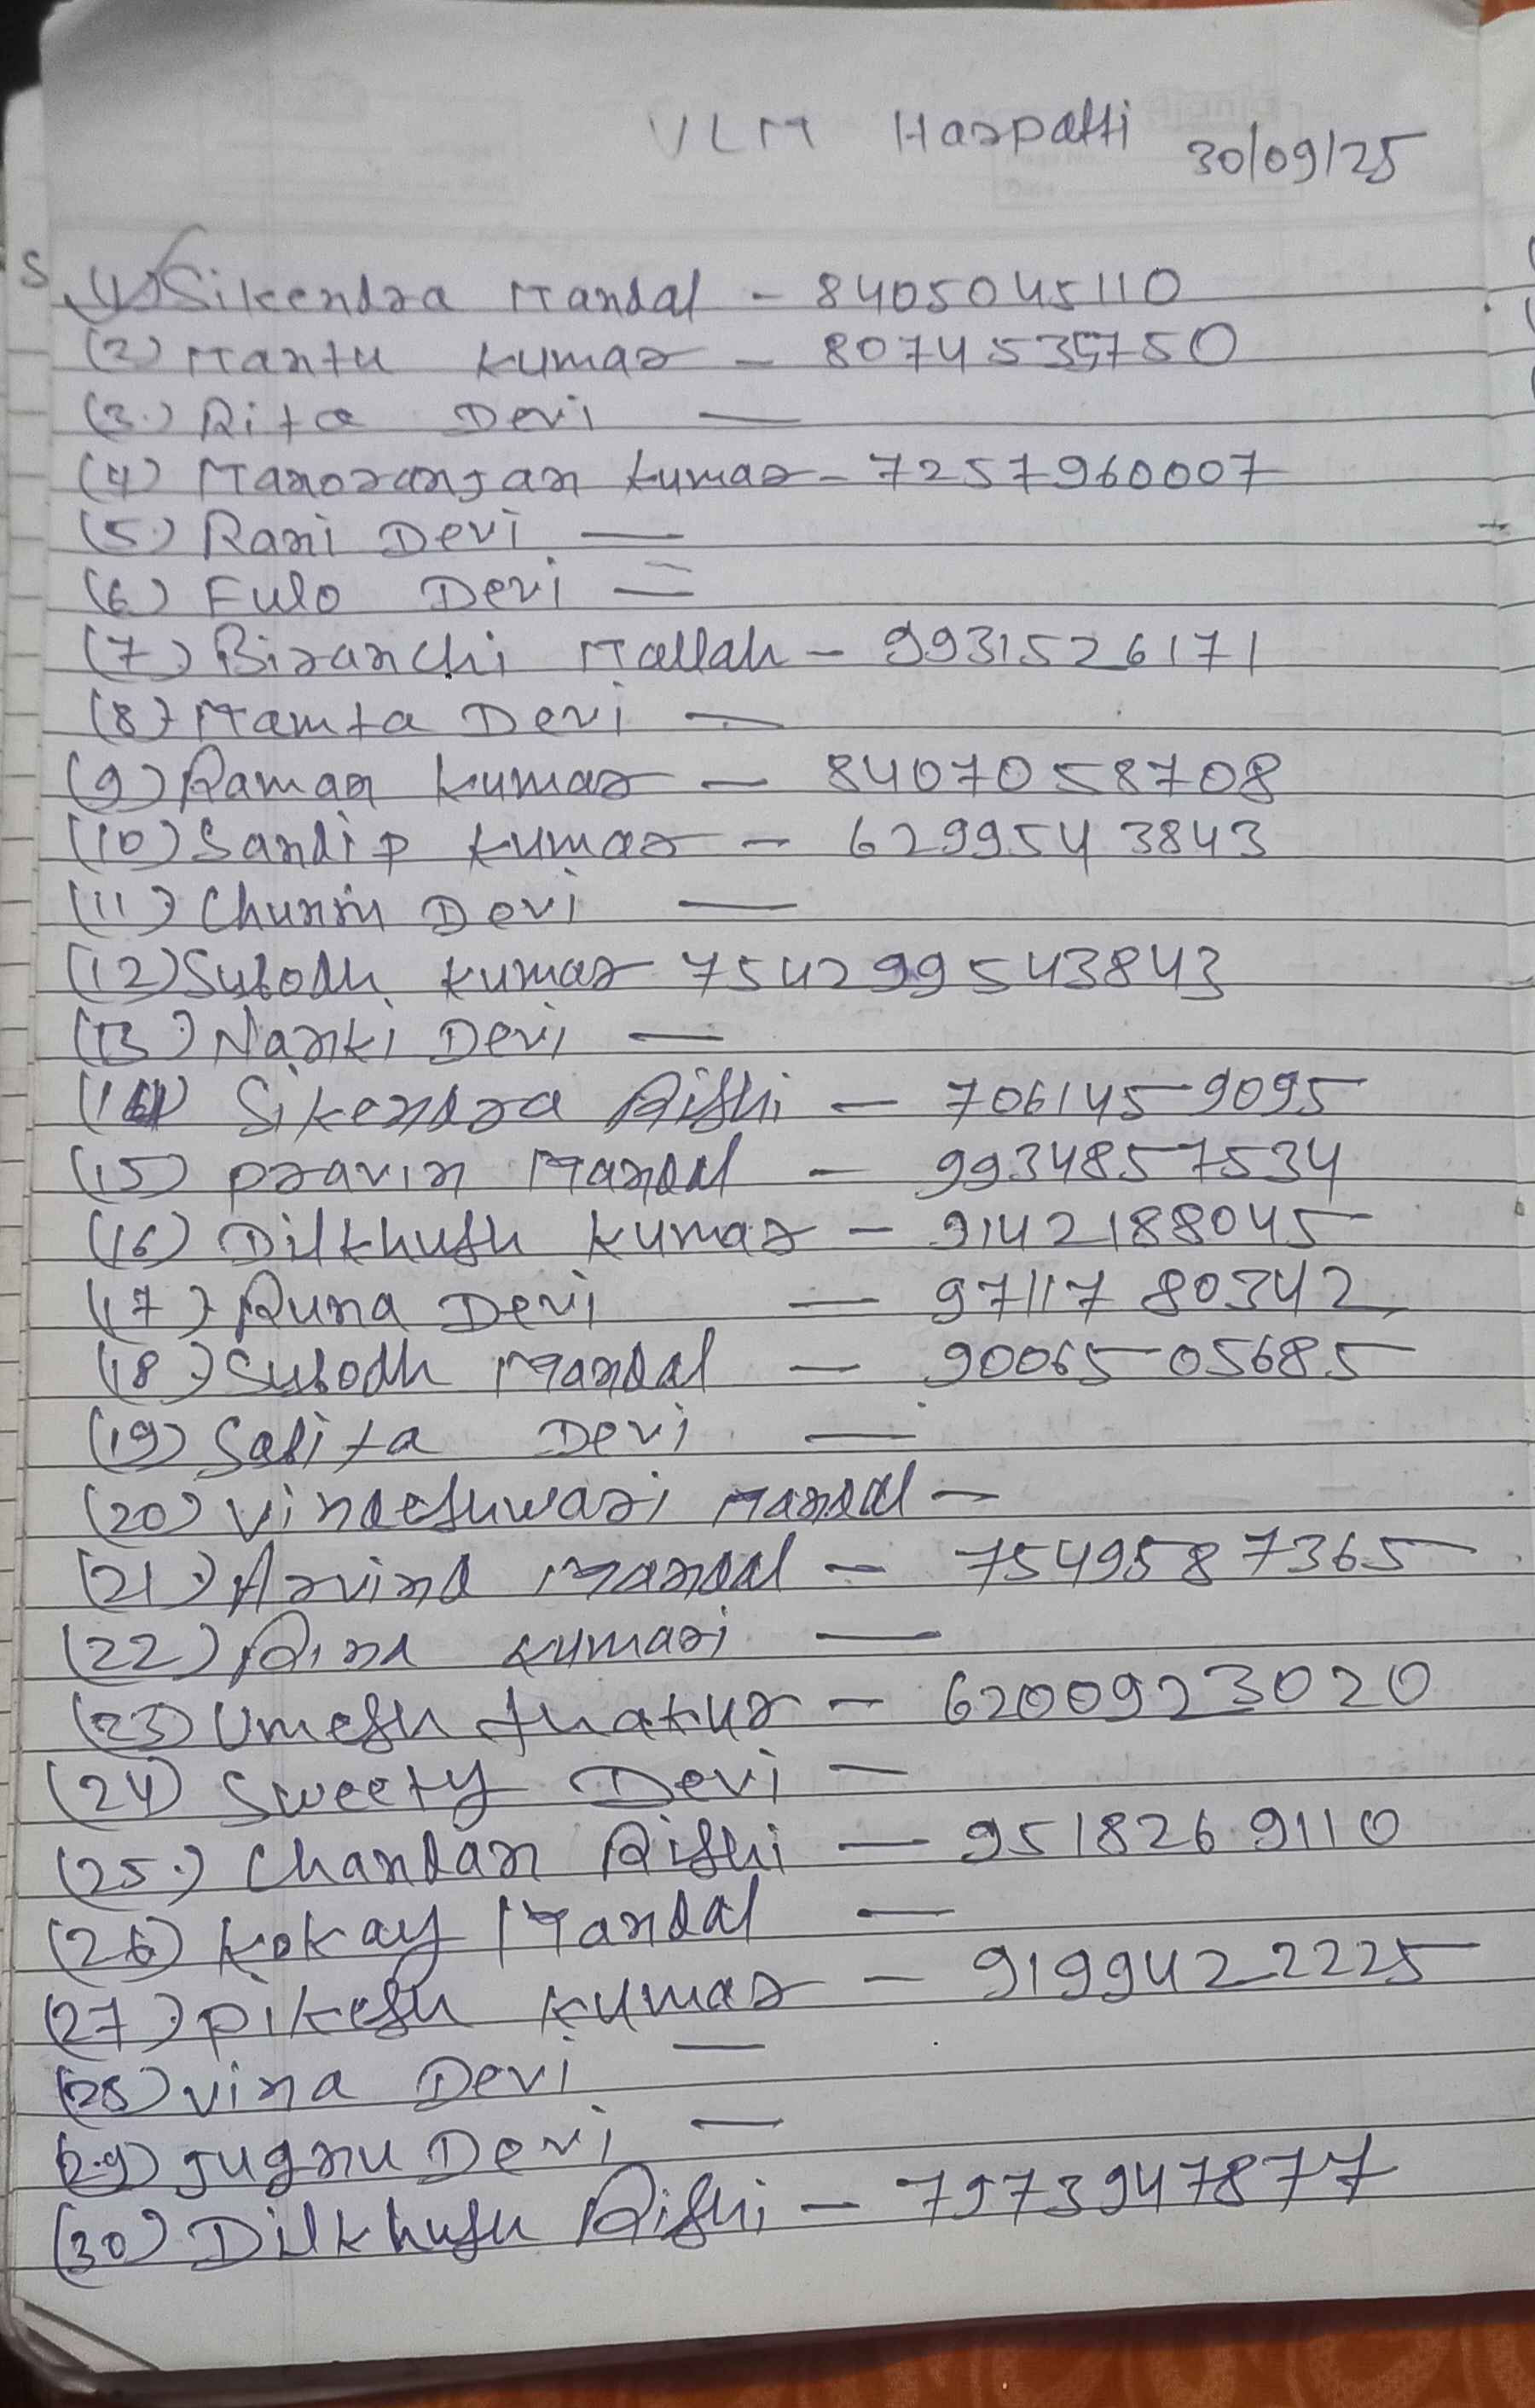 VLM Harpatti 30/09/25
(1) Sikendra Mandal - 8405045110
(2) Mantu Kumar - 8074535750
(3.) Rita Devi —
(4) Manoranjan Kumar - 7257960007
(5.) Rani Devi —
(6) Fulo Devi =
(7) Biranchi Mallah - 9931526171
(8) Mamta Devi —
(9) Raman Kumar - 8407058708
(10) Sandip Kumar - 6299543843
(11) Chunni Devi —
(12) Subodh Kumar 754299543843
(13) Nanki Devi —
(14) Sikendra Rishi - 7061459095
(15) Pravin Mandal - 9934857534
(16) Dilkhush Kumar - 9142188045
(17) Runa Devi — 9711780342
(18) Subodh Mandal — 9006505685
(19) Sabita Devi —
(20) Vindeshwari Mandal -
(21) Arvind Mandal - 7549587365
(22) Rina Kumari —
(23) Umesh Thakur - 6200923020
(24) Sweety Devi -
(25.) Chandan Rishi — 9518269110
(26) Kokay Mandal —
(27) Pikesh Kumar - 9199422225
(28) Vina Devi —
(29) Jugnu Devi —
(30) Dilkhush Rishi - 7973947877